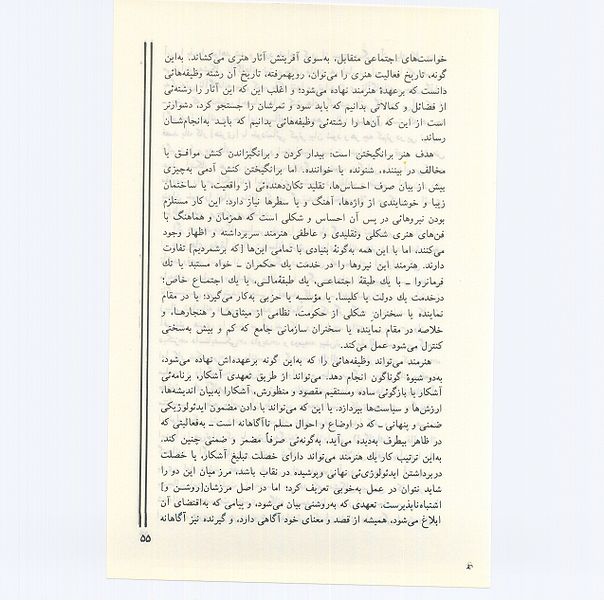 خواست‌های اجتماعی متقابل، به‌سوی آفرینش آثار هنری می‌کشاند. به‌این
گونه، تاریخ فعالیت هنری را می‌توان، رویهمرفته، تاریخ آن رشته وظیفه‌هائی
دانست که برعهدهٔ هنرمند نهاده می‌شود؛ و اغلب این که این آثار را رشته‌ئی
از فضائل و کمالاتی بدانیم که باید سود و ثمرشان را جستجو کرد، دشوارتر
است از این که آن‌ها را رشته‌ئی وظیفه‌هائی بدانیم که باید به‌انجام‌شان
رساند.
هدف هنر برانگیختن است: بیدار کردن و برانگیزاندن کنش موافق یا
مخالف در بیننده، شنونده یا خواننده. اما برانگیختن کنش آدمی به‌چیزی
بیش از بیان صرف احساس‌ها، تقلید تکان‌دهنده‌ئی از واقعیت، یا ساختمان
زیبا و خوشایندی از واژه‌ها، آهنگ و یا سطرها نیاز دارد: این کار مستلزم
بودن نیروهائی در پس آن احساس و شکلی است که همزمان و هماهنگ با
فن‌های هنری شکلی وتقلیدی و عاطفی هنرمند سربرداشته و اظهار وجود
می‌کنند، اما با این همه به‌گونهٔ بنیادی با تمامی این‌ها [که برشمردیم] تفاوت
دارند. هنرمند این نیروها را در خدمت یك حکمران ــ خواه مستبد یا تك
فرمانروا ــ یا یك طبقهٔ اجتماعـی، یك طبقهٔ‌مالـی، یا یك اجتمـاع خاص؛
درخدمت یك دولت یا کلیسا، یا مؤسسه یا حزبی به‌کار می‌گیرد؛ یا در مقام
نماینده یا سخنران شکلی از حکومت، نظامی از میثاق‌ها و هنجارها، و
خلاصه در مقام نماینده یا سخنران سازمانی جامع که کم و بیش به‌سختی
کنترل می‌شود عمل می‌کند.
هنرمند می‌تواند وظیفه‌هائی را که به‌این گونه برعهده‌اش نهاده می‌شود،
به‌دو شیوهٔ گوناگون انجام دهد. می‌تواند از طریق تعهدی آشکار، برنامه‌ئی
آشکار یا بازگوئی ساده ومستقیم مقصود و منظورش، آشکارا به‌بیان اندیشه‌ها،
ارزش‌ها و سیاست‌ها بپردازد. یا این که می‌تواند با دادن مضمون ایدئولوژیکی
ضمنی و پنهانی ــ که در اوضاع و احوال مسلم ناآگاهانه است ــ به‌فعالیتی که
در ظاهر بیطرف به‌دیده می‌آید، به‌گونه‌ئی صرفاً مضمر و ضمنی چنین کند.
به‌این ترتیب کار یك هنرمند می‌تواند دارای خصلت تبلیغ آشکار، یا خصلت
دربرداشتن ایدئولوژی‌ئی نهانی وپوشیده در نقاب باشد. مرز میان این دو را
شاید نتوان در عمل به‌خوبی تعریف کرد؛ اما در اصل مرزشان[روشـن و]
اشتباه‌ناپذیرست. تعهدی که به‌روشنی بیان می‌شود، و پیامی که به‌اقتضای آن
ابلاغ می‌شود، همیشه از قصد و معنای خود آگاهی دارد، و گیرنده نیز آگاهانه
۵۵